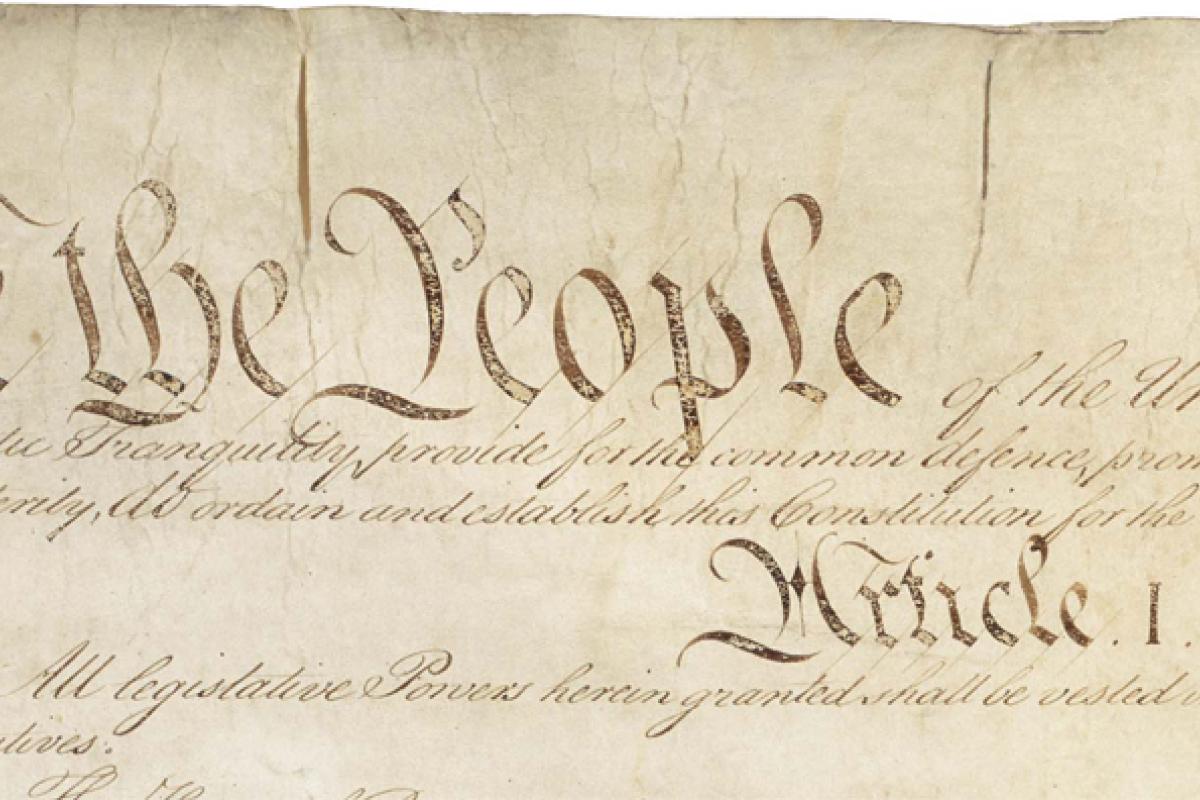 the People of the Un
tic Tranquility, provide for the common defence, prom
terity, do ordain and establish this Constitution for the
Article. I.
All legislative Powers herein granted shall be vested
atives.